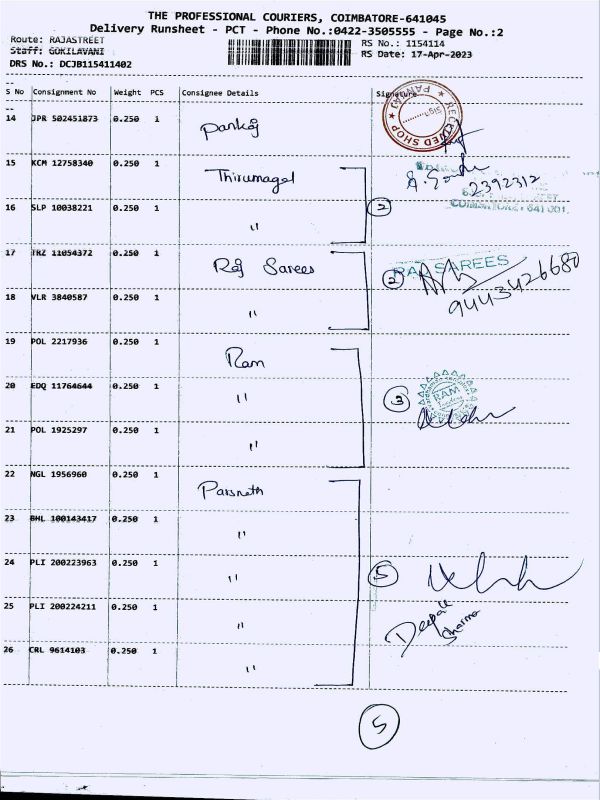 THE PROFESSIONAL COURIERS, COIMBATORE-641045
Delivery Runsheet - PCT - Phone No.:0422-3505555 - Page No.:2
Route: RAJASTREET RS No.: 1154114
Staff: GOKILAVANI RS Date: 17-Apr-2023
DRS No.: DCJB115411402
S No Consignment No Weight PCS Consignee Details Signature
14 JPR 502451873 0.250 1 Pankaj
RECEIVED SHOP PANKAJ Sign
15 KCM 12758340 0.250 1 Thirumagal
2392312
COIMBATORE - 641 001.
16 SLP 10038221 0.250 1 " 2
17 TRZ 11054372 0.250 1 Raj Sarees 2 RAJ SAREES
9443426680
18 VLR 3840587 0.250 1 "
19 POL 2217936 0.250 1 Ram
20 EDQ 11764644 0.250 1 " 3 RAM
21 POL 1925297 0.250 1 "
22 NGL 1956960 0.250 1 Parsnath
23 BHL 100143417 0.250 1 "
24 PLI 200223963 0.250 1 " 5
25 PLI 200224211 0.250 1 " Deepak Sharma
26 CRL 9614103 0.250 1 "
5